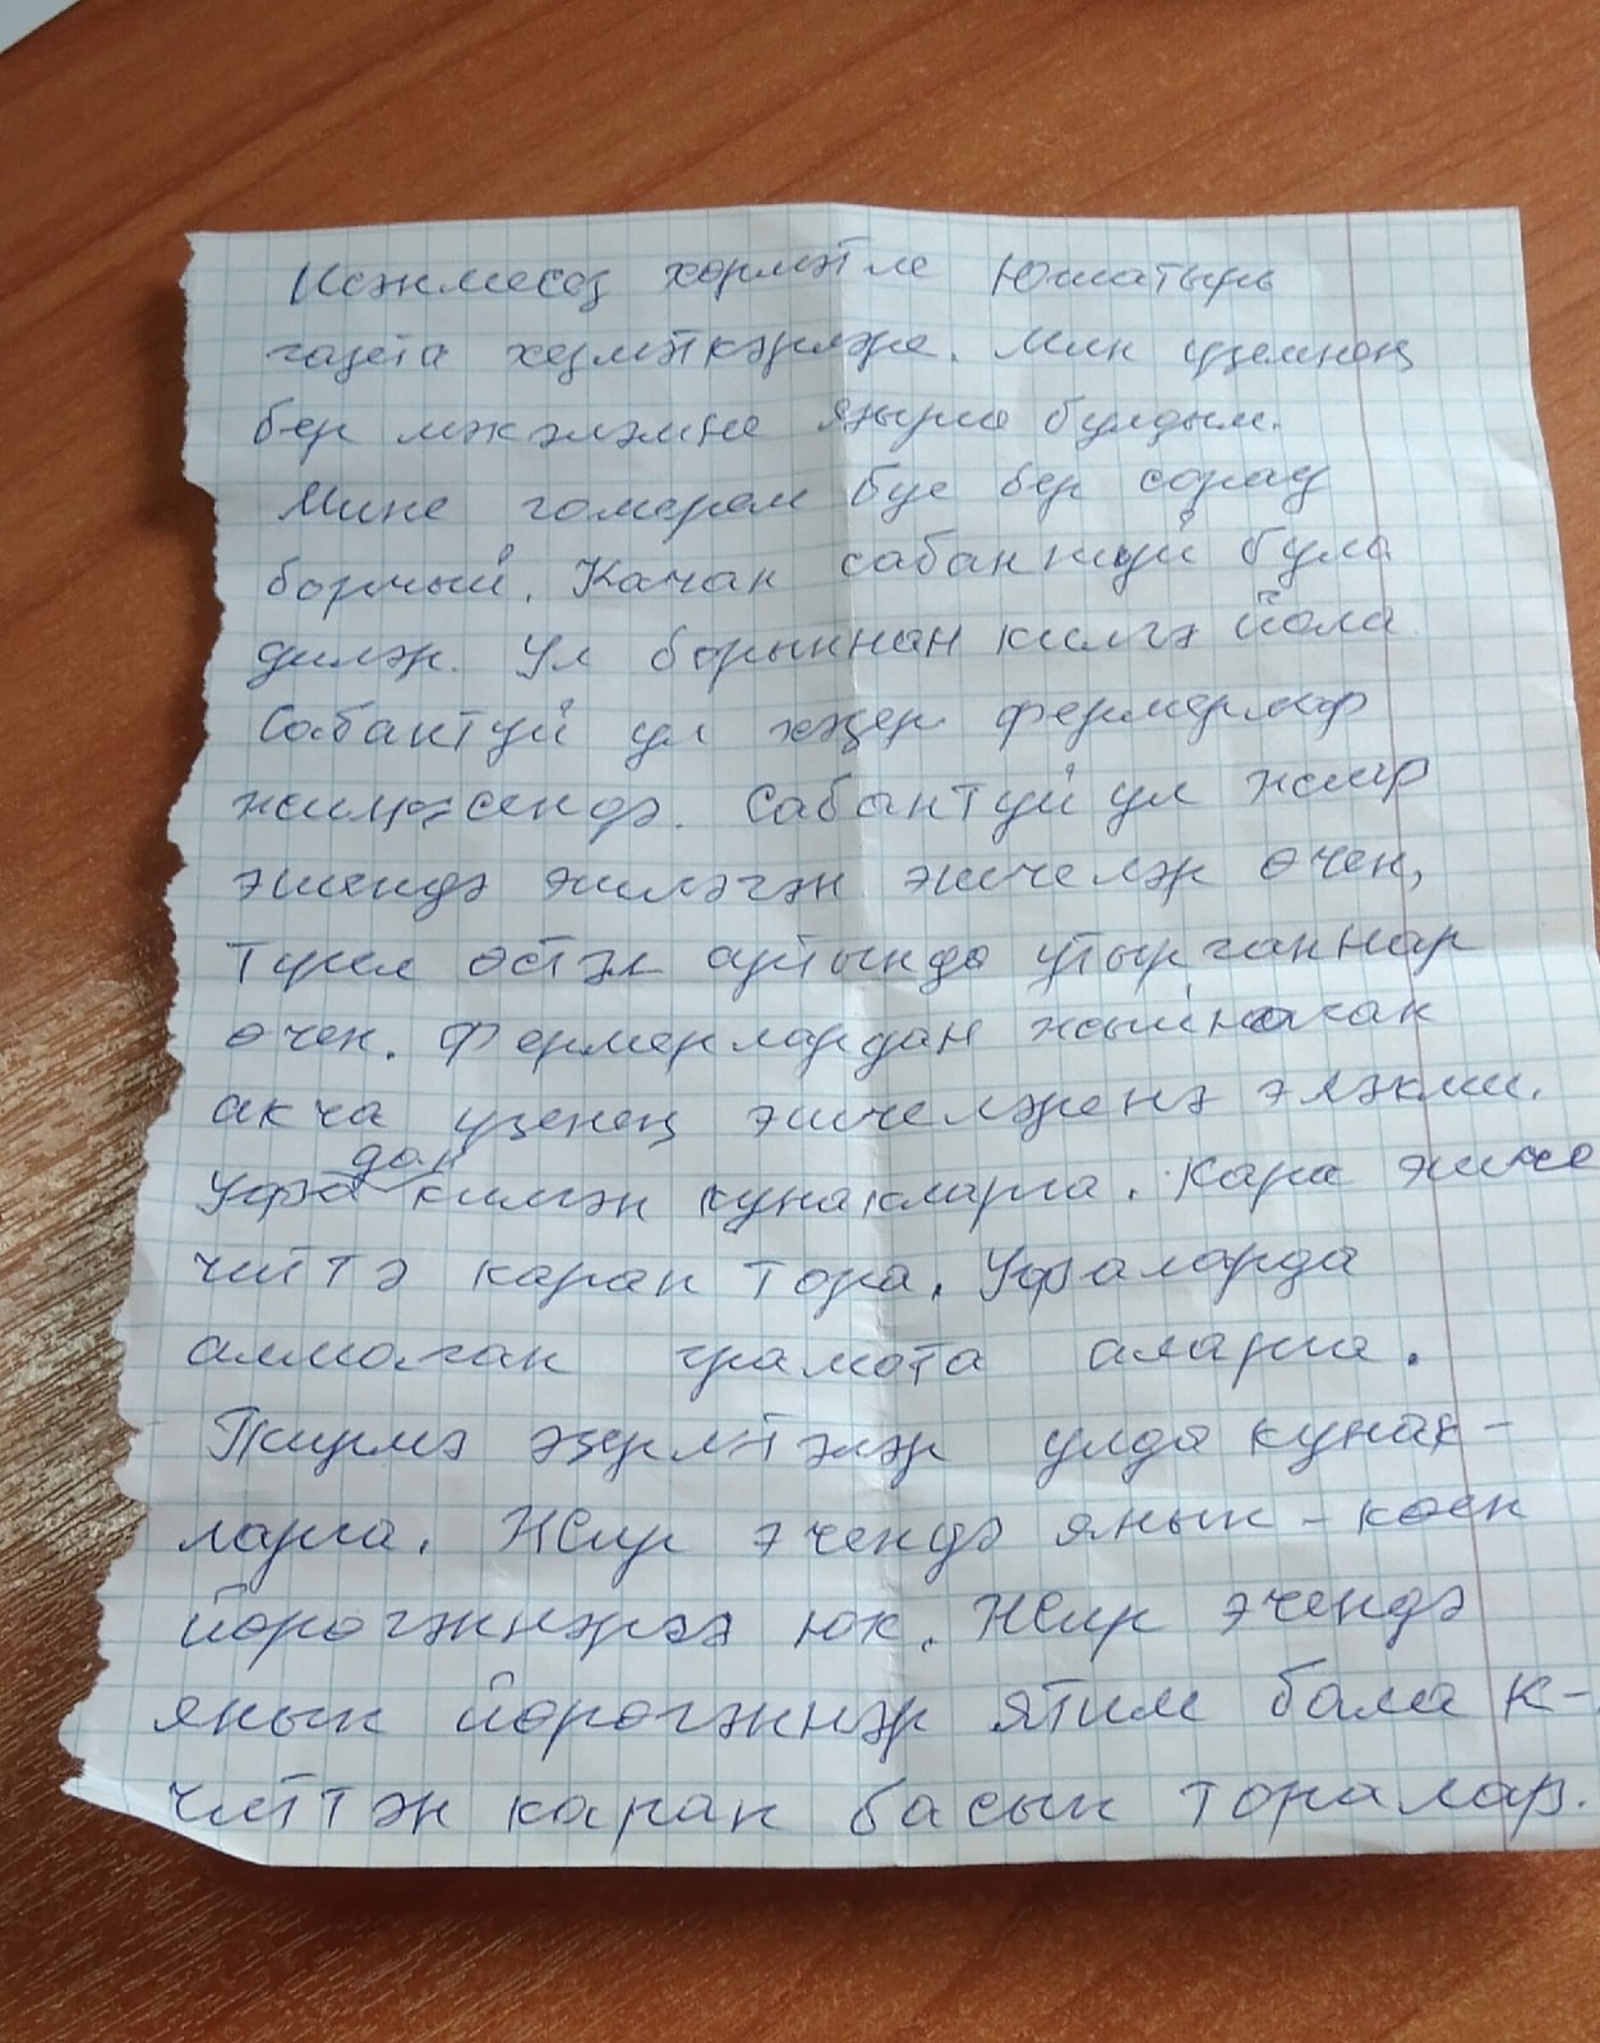 Исәнмесез хөрмәтле Юшатырь
газета хезмәткәрләре. Мин үземнең
бер мәкәләмне языргы булдым.
Мине гомерем буе бер сорау
борчый. Качан сабантуй була
диләр. Ул борыннан килгә йола
Сабантуй ул хәзер фермерлар
җилкәсендә. Сабантуй ул җир
эшендә эшләгән эшчеләр өчен,
түгел өстәл артында утырганнар
өчен. Фермерлардан җыйналган
акча үзенең эшчеләренә эләкми.
Уфадан килгән кунакларга. Кара эшче
читтә карап тора. Уфаларда
алмаган грамота аларга.
Тирмә әзерлиләр улда кунак-
ларга. Җир эчендә янып-көеп
йөрөгәннәргә юк. Җир эчендә
янып йөрөгәннәр ятим бала к-
читтән карап басып торалар.